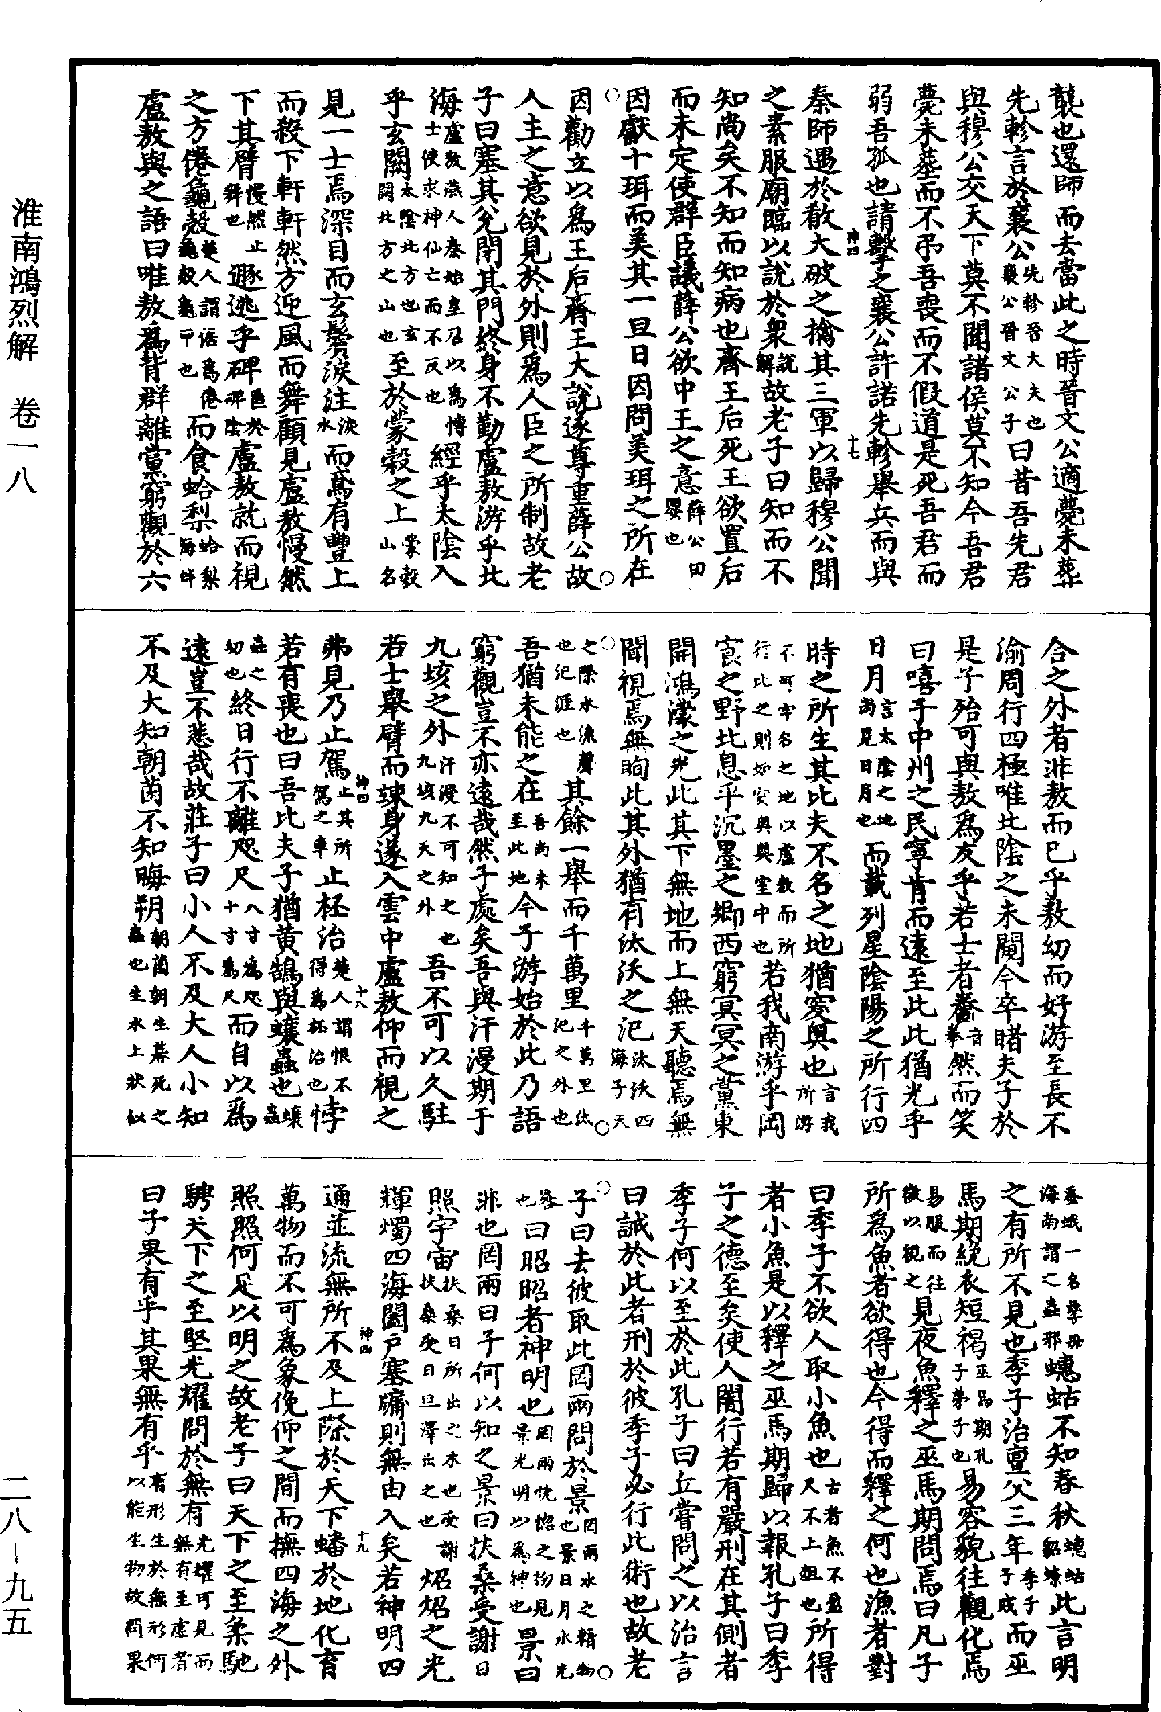 襲也還師而去當此之時晉文公適薨未葬
先軫言於襄公先軫晉大夫也襄公晉文公子曰昔吾先君
與穆公交天下莫不聞諸侯莫不知今吾君
薨未葬而不弔吾喪而不假道是死吾君而
弱吾孤也請擊之襄公許諾先軫舉兵而與
神四 十七
秦師遇於殽大破之擒其三軍以歸穆公聞
之素服廟臨以說於衆說解故老子曰知而不
知尚矣不知而知病也齊王后死王欲置后
而未定使群臣議薛公欲中王之意薛公田嬰也
因獻十珥而美其一旦日因問美珥之所在
○因勸立以爲王后齊王大說遂尊重薛公故○
人主之意欲見於外則爲人臣之所制故老
子曰塞其兌閉其門終身不勤盧敖游乎北
海盧敖燕人秦始皇召以爲博士使求神仙亡而不反也經乎太陰入
乎玄闕太陰北方也玄闕北方之山也至於蒙榖之上蒙榖山名
見一士焉深目而玄鬢淚注淚水而鳶肩豐上
而殺下軒軒然方迎風而舞顧見盧敖慢然
下其臂慢然止舞也遯逃乎碑匿於碑陰盧敖就而視
之方倦龜殼楚人謂倨爲倦龜殼龜甲也而食蛤梨蛤梨海蚌
盧敖與之語曰唯敖爲背群離黨窮觀於六
合之外者非敖而已乎敖幼而好游至長不
渝周行四極唯北陰之未闚今卒睹夫子於
是子殆可與敖爲友乎若士者齤音拳然而笑
曰嘻子中州之民寧肯而遠至此此猶光乎
日月言太陰之地尚見日月也而載列星陰陽之所行四
時之所生其比夫不名之地猶窔奧也言我所游不可字名之地以盧敖所行比之則如窔奧室中也若我南游乎岡
㝗之野北息乎沉墨之鄉西窮冥冥之黨東
開鴻濛之光此其下無地而上無天聽焉無
聞視焉無眴此其外猶有汰沃之汜汰沃四海子天
○之際水流聲也汜涯也其餘一舉而千萬里千萬里汰汜之外也○
吾猶未能之在吾尚未至此地今子游始於此乃語
窮觀豈不亦遠哉然子處矣吾與汗漫期于
九垓之外汗漫不可知之也九垓九天之外吾不可以久駐
若士舉臂而竦身遂入雲中盧敖仰而視之
神四 十八
弗見乃止駕止其所駕之車止柸治楚人謂恨不得爲柸治也悖
若有喪也曰吾比夫子猶黃鵠與蠰蟲也蠰蟲蟲之幼也終日行不離咫尺八寸爲咫十寸爲尺而自以爲
遠豈不悲哉故莊子曰小人不及大人小知
不及大知朝菌不知晦朔朝菌朝生暮死之蟲也生水上狀似
蠶蛾一名孳母海南謂之蟲邪蟪蛄不知春秋蟪蛄貂蟟此言明
之有所不見也季子治亶父三年季子子賤而巫
馬期絻衣短褐巫馬期孔子弟子也易容貌往觀化焉
易服而往微以視之見夜魚釋之巫馬期問焉曰凡子
所爲魚者欲得也今得而釋之何也漁者對
曰季子不欲人取小魚也古者魚不盈尺不上俎也所得
者小魚是以釋之巫馬期歸以報孔子曰季
子之德至矣使人闇行若有嚴刑在其側者
季子何以至於此孔子曰丘嘗問之以治言
曰誡於此者刑於彼季子必行此術也故老
○子曰去彼取此罔兩問於景罔兩水之精物也景日月水光○
晷也曰昭昭者神明也罔兩恍惚之物見景光明以爲神也景曰
非也罔兩曰子何以知之景曰扶桑受謝日
照宇宙扶桑日所出之木也受謝扶桑受日旦澤出之也炤炤之光
輝燭四海闔戶塞牖則無由入矣若神明四
神四 十九
通並流無所不及上際於天下蟠於地化育
萬物而不可爲象俛仰之間而撫四海之外
照照何足以明之故老子曰天下之至柔馳
騁天下之至堅光耀問於無有光耀可見而無有至虛者
曰子果有乎其果無有乎有形生於無形何以能生物故問果
淮南鴻烈解 卷一八
二八—九五